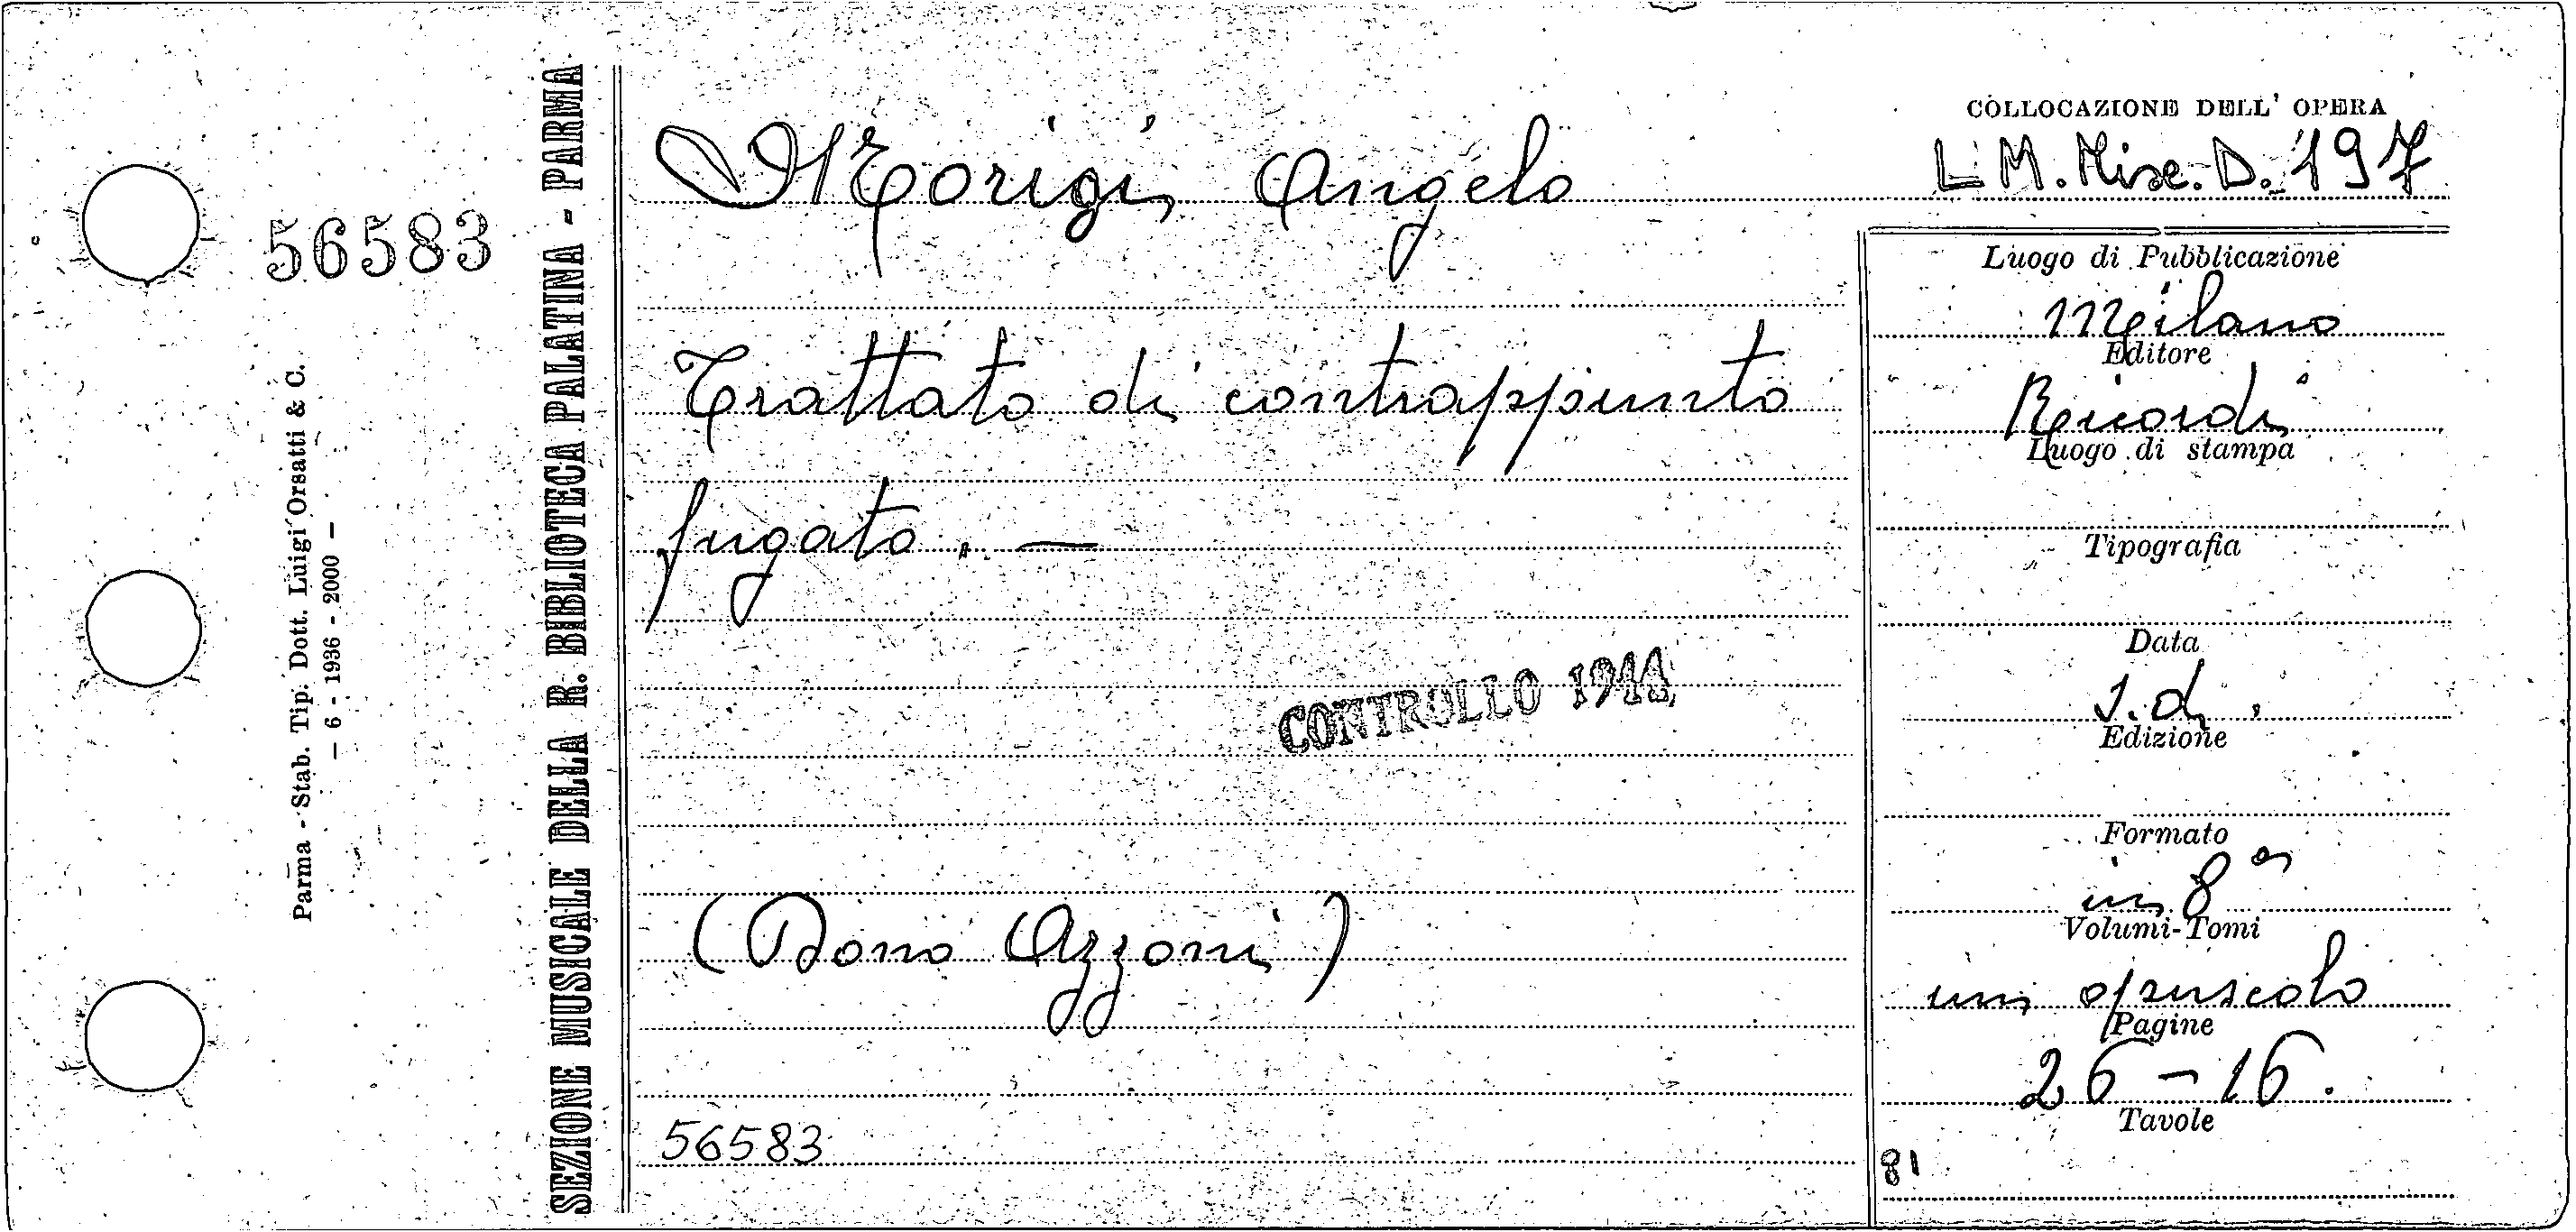 56583
Parma - Stab. Tip. Dott. Luigi Orsatti & C.
— 6 - 1936 - 2000 —
SEZIONE MUSICALE DELLA R. BIBLIOTECA PALATINA - PARMA
Morigi Angelo
Trattato di contrappunto
fugato. —
CONTROLLO 1944
(Dono Azzoni)
56583
COLLOCAZIONE DELL' OPERA
L M. Misc. D. 197
Luogo di Pubblicazione
Milano
Editore
Ricordi
Luogo di stampa
Tipografia
Data
s.d.
Edizione
Formato
in 8º
Volumi-Tomi
un opuscolo
Pagine
26 - 16.
Tavole
81